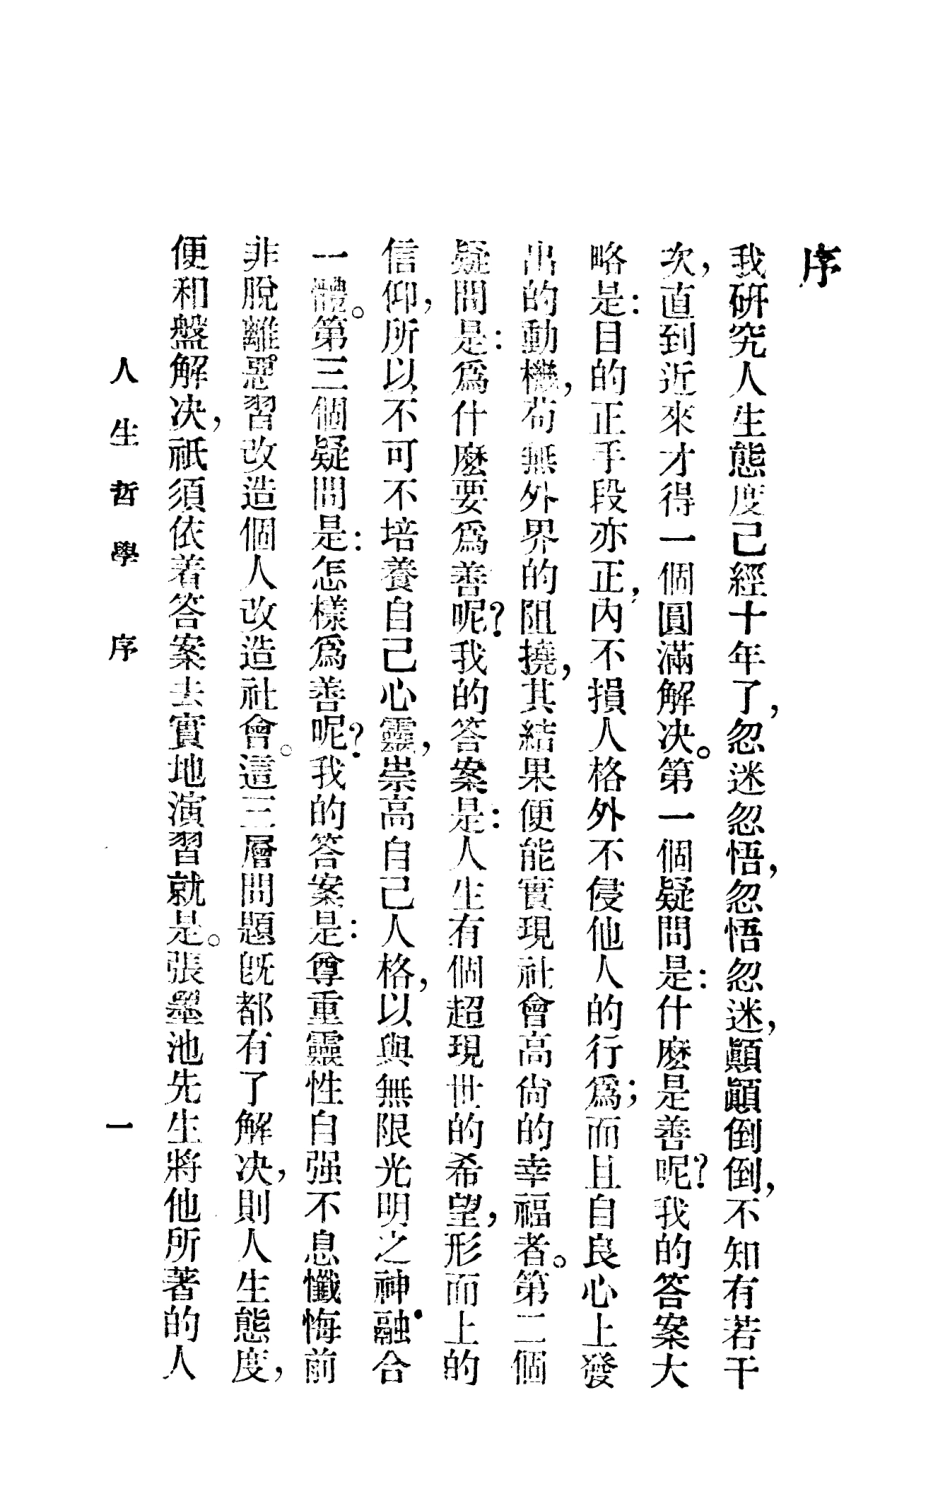 序
我研究人生態度己經十年了,忽迷忽悟,忽悟忽迷,顚顚倒倒,不知有若干
次,直到近來才得一個圓滿解決。第一個疑問是:什麽是善呢?我的答案大
略是:目的正手段亦正,內不損人格外不侵他人的行爲;而且自良心上發
出的動機,苟無外界的阻撓,其結果便能實現社會高尙的幸福者。第二個
疑問是:爲什麽要爲善呢?我的答案是:人生有個超現世的希望,形而上的
信仰,所以不可不培養自己心靈,崇高自己人格,以與無限光明之神融合
一體。第三個疑問是:怎樣爲善呢?我的答案是:尊重靈性自强不息懺悔前
非脫離惡習改造個人改造社會。這三層問題旣都有了解決,則人生態度,
便和盤解決,祇須依着答案去實地演習就是。張墨池先生將他所著的人
人生哲學 序 一